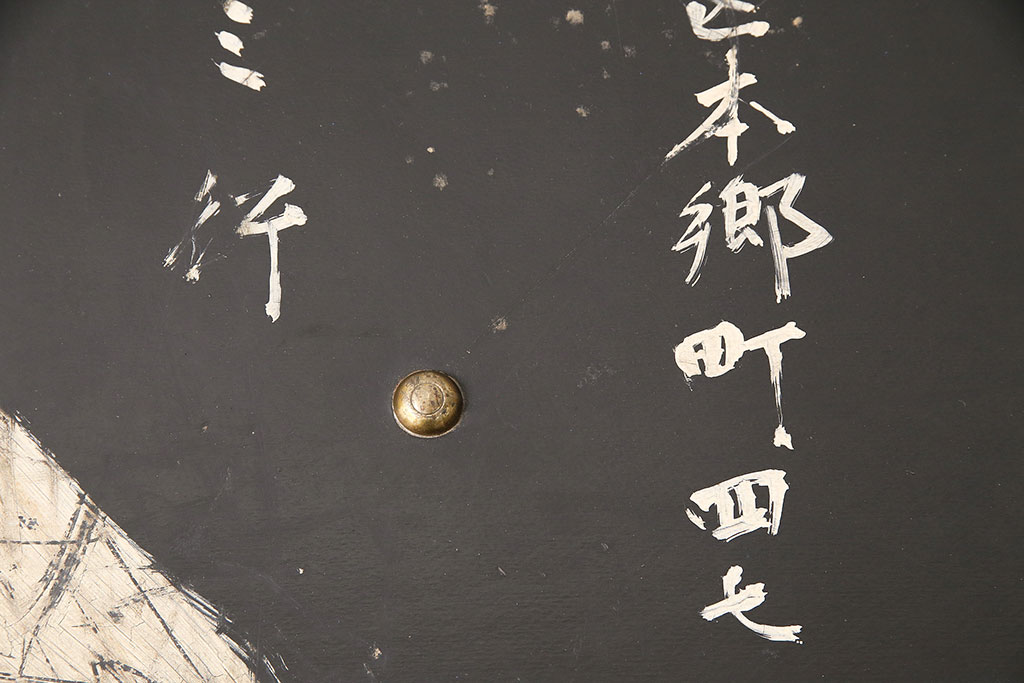 本郷町四七
三行